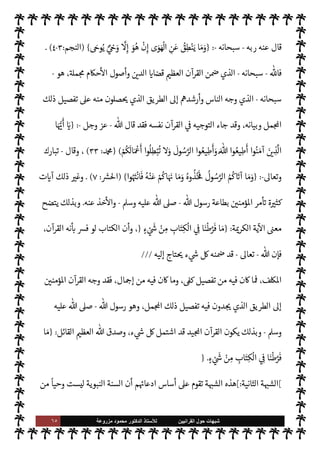 قال عنه ربه - سبحانه -: {وَمَا يَنْطِقُ عَنِ الْهَوَى إِنْ هُوَ إِلَّا وَحْيٌ يُوحَى} (النجم:٤،٣) .
فالله - سبحانه - الذي ضمن القرآن العظيم قضايا الدين وأصول الأحكام مجملة، هو -
سبحانه - الذي وجه الناس وأرشدهم إلى الطريق الذي يحصلون منه على تفصيل ذلك
المجمل وبيانه. وقد جاء التوجيه في القرآن نفسه فقد قال الله - عز وجل -: {يَا أَيُّهَا
الَّذِينَ آمَنُوا أَطِيعُوا اللَّهَ وَأَطِيعُوا الرَّسُولَ وَلَا تُبْطِلُوا أَعْمَالَكُمْ} (محمد: ٣٣) ، وقال - تبارك
وتعالى-: {وَمَا آتَاكُمُ الرَّسُولُ فَخُذُوهُ وَمَا نَهَاكُمْ عَنْهُ فَانْتَهُوا} (الحشر: ٧) . وغير ذلك آيات
كثيرة تأمر المؤمنين بطاعة رسول الله - صلى الله عليه وسلم - والأخذ عنه. وبذلك يتضح
معنى الآية الكريمة: {مَا فَرَّطْنَا فِي الْكِتَابِ مِنْ شَيْءٍ} ، وأن الكتاب لو فسر بأنه القرآن،
فإن الله - تعالى - قد ضمنه كل شيء يحتاج إليه ///
المكلف، فما كان فيه من تفصيل كفى، وما كان فيه من إجمال، فقد وجه القرآن المؤمنين
إلى الطريق الذي يجدون فيه تفصيل ذلك المجمل، وهو رسول الله - صلى الله عليه
وسلم - وبذلك يكون القرآن المجيد قد اشتمل كل شيء، وصدق الله العظيم القائل: {مَا
فَرَّطْنَا فِي الْكِتَابِ مِنْ شَيْءٍ} .
[الشبهة الثانية:] هذه الشبهة تقوم على أساس ادعائهم أن السنة النبوية ليست وحياً من
شبهات حول القرآنيين للأستاذ الدكتور محمود مزروعة ٦٥